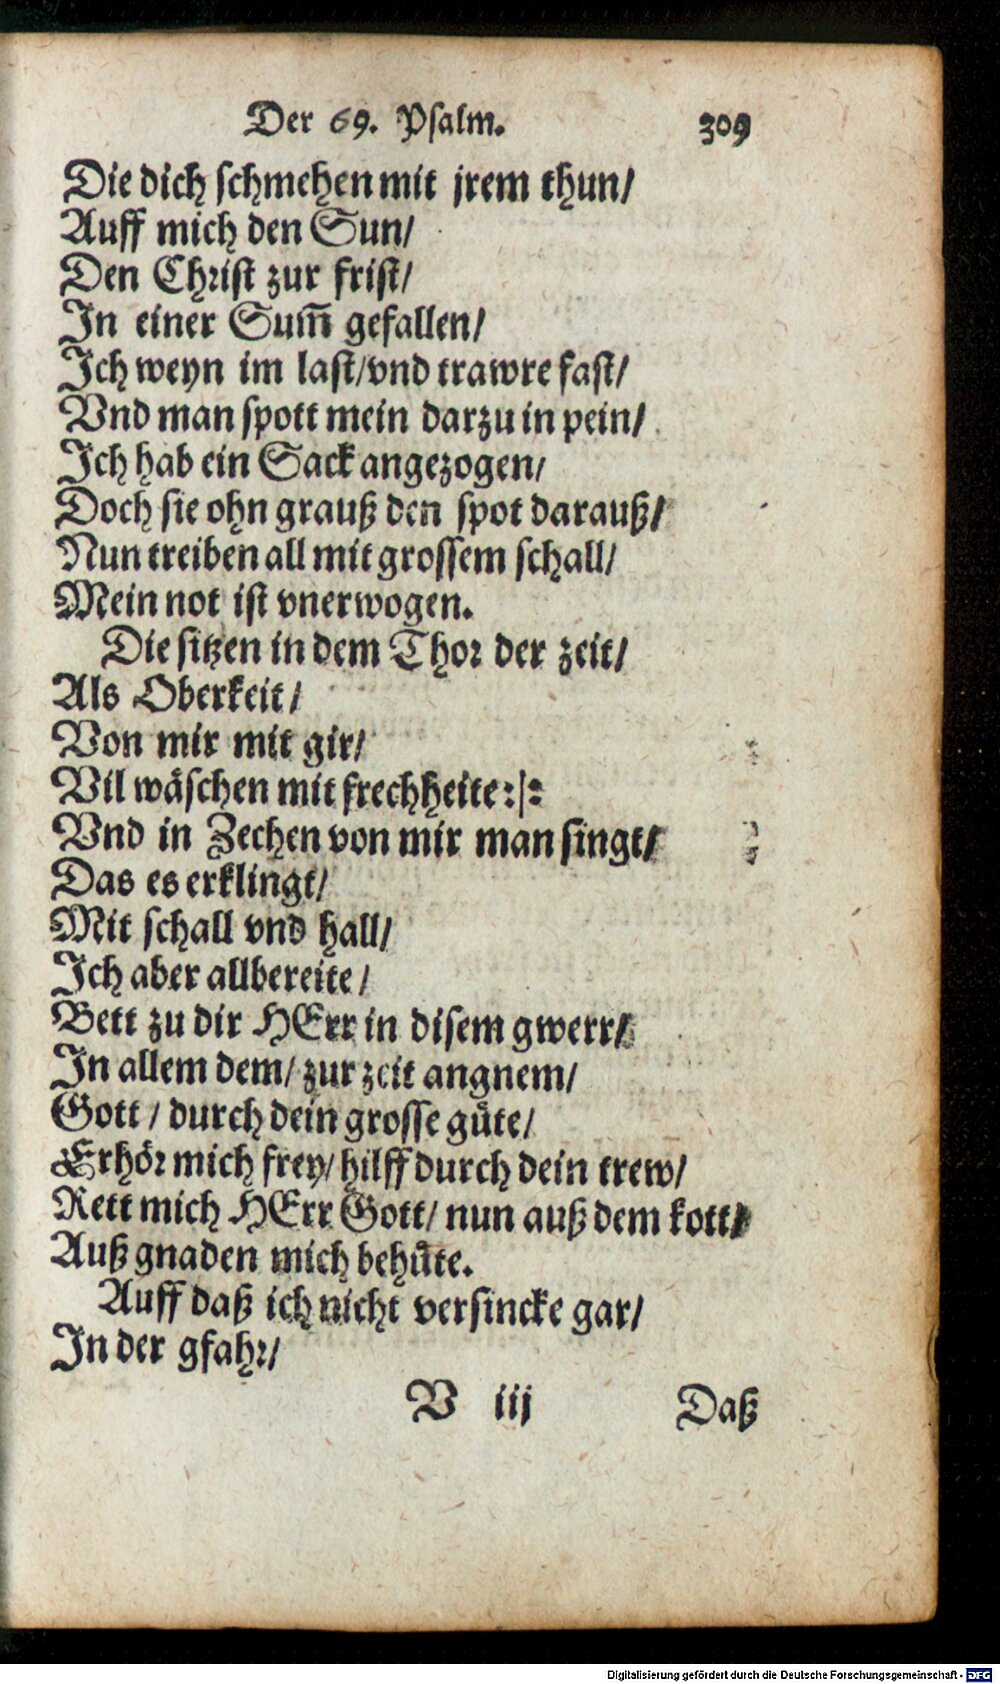 Der 69. Psalm. 309
Die dich schmehen mit jrem thun/
Auff mich den Sun/
Den Christ zur frist/
In einer Sum̃ gefallen/
Ich weyn im last/vnd trawre fast/
Vnd man spott mein darzu in pein/
Ich hab ein Sack angezogen/
Doch sie ohn grauß den spot darauß/
Nun treiben all mit grossem schall/
Mein not ist vnerwogen.
Die sitzen in dem Thor der zeit/
Als Oberkeit/
Von mir mit gir/
Vil wäschen mit frechheite:|:
Vnd in Zechen von mir man singt/
Das es erklingt/
Mit schall vnd hall/
Ich aber allbereite/
Bett zu dir HErr in disem gwerr/
In allem dem/ zur zeit angnem/
Gott/ durch dein grosse gůte/
Erhör mich frey/ hilff durch dein trew/
Rett mich HErr Gott/ nun auß dem kott/
Auß gnaden mich behůte.
Auff daß ich nicht versincke gar/
In der gfahr/
V iij Daß
Digitalisierung gefördert durch die Deutsche Forschungsgemeinschaft - DFG